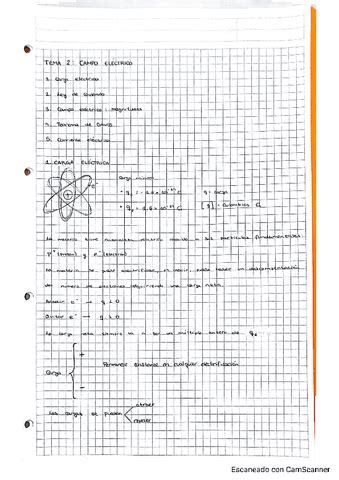 TEMA 2: CAMPO ELÉCTRICO
1. Carga eléctrica
2. Ley de Coulomb
3. Campo eléctrico: magnitudes
4. Teorema de Gauss
5. Corriente eléctrica
1. CARGA ELÉCTRICA
e⁻
+
Carga mínima:
q = carga
[q] = Coulombios C
La materia tiene naturaleza eléctrica debido a sus partículas fundamentales
p⁺ (protón) y e⁻ (electrón)
La materia se puede electrificar, es decir, puede tener un descompensación
de número de electrones adquiriendo una carga neta.
e⁻ → q < 0
Quitar e⁻ → q > 0
La carga neta siempre va a ser un múltiplo entero de qₑ
Carga
+
-
Permanece constante en cualquier electrificación
Las cargas se pueden
atraer
repeler
Escaneado con CamScanner